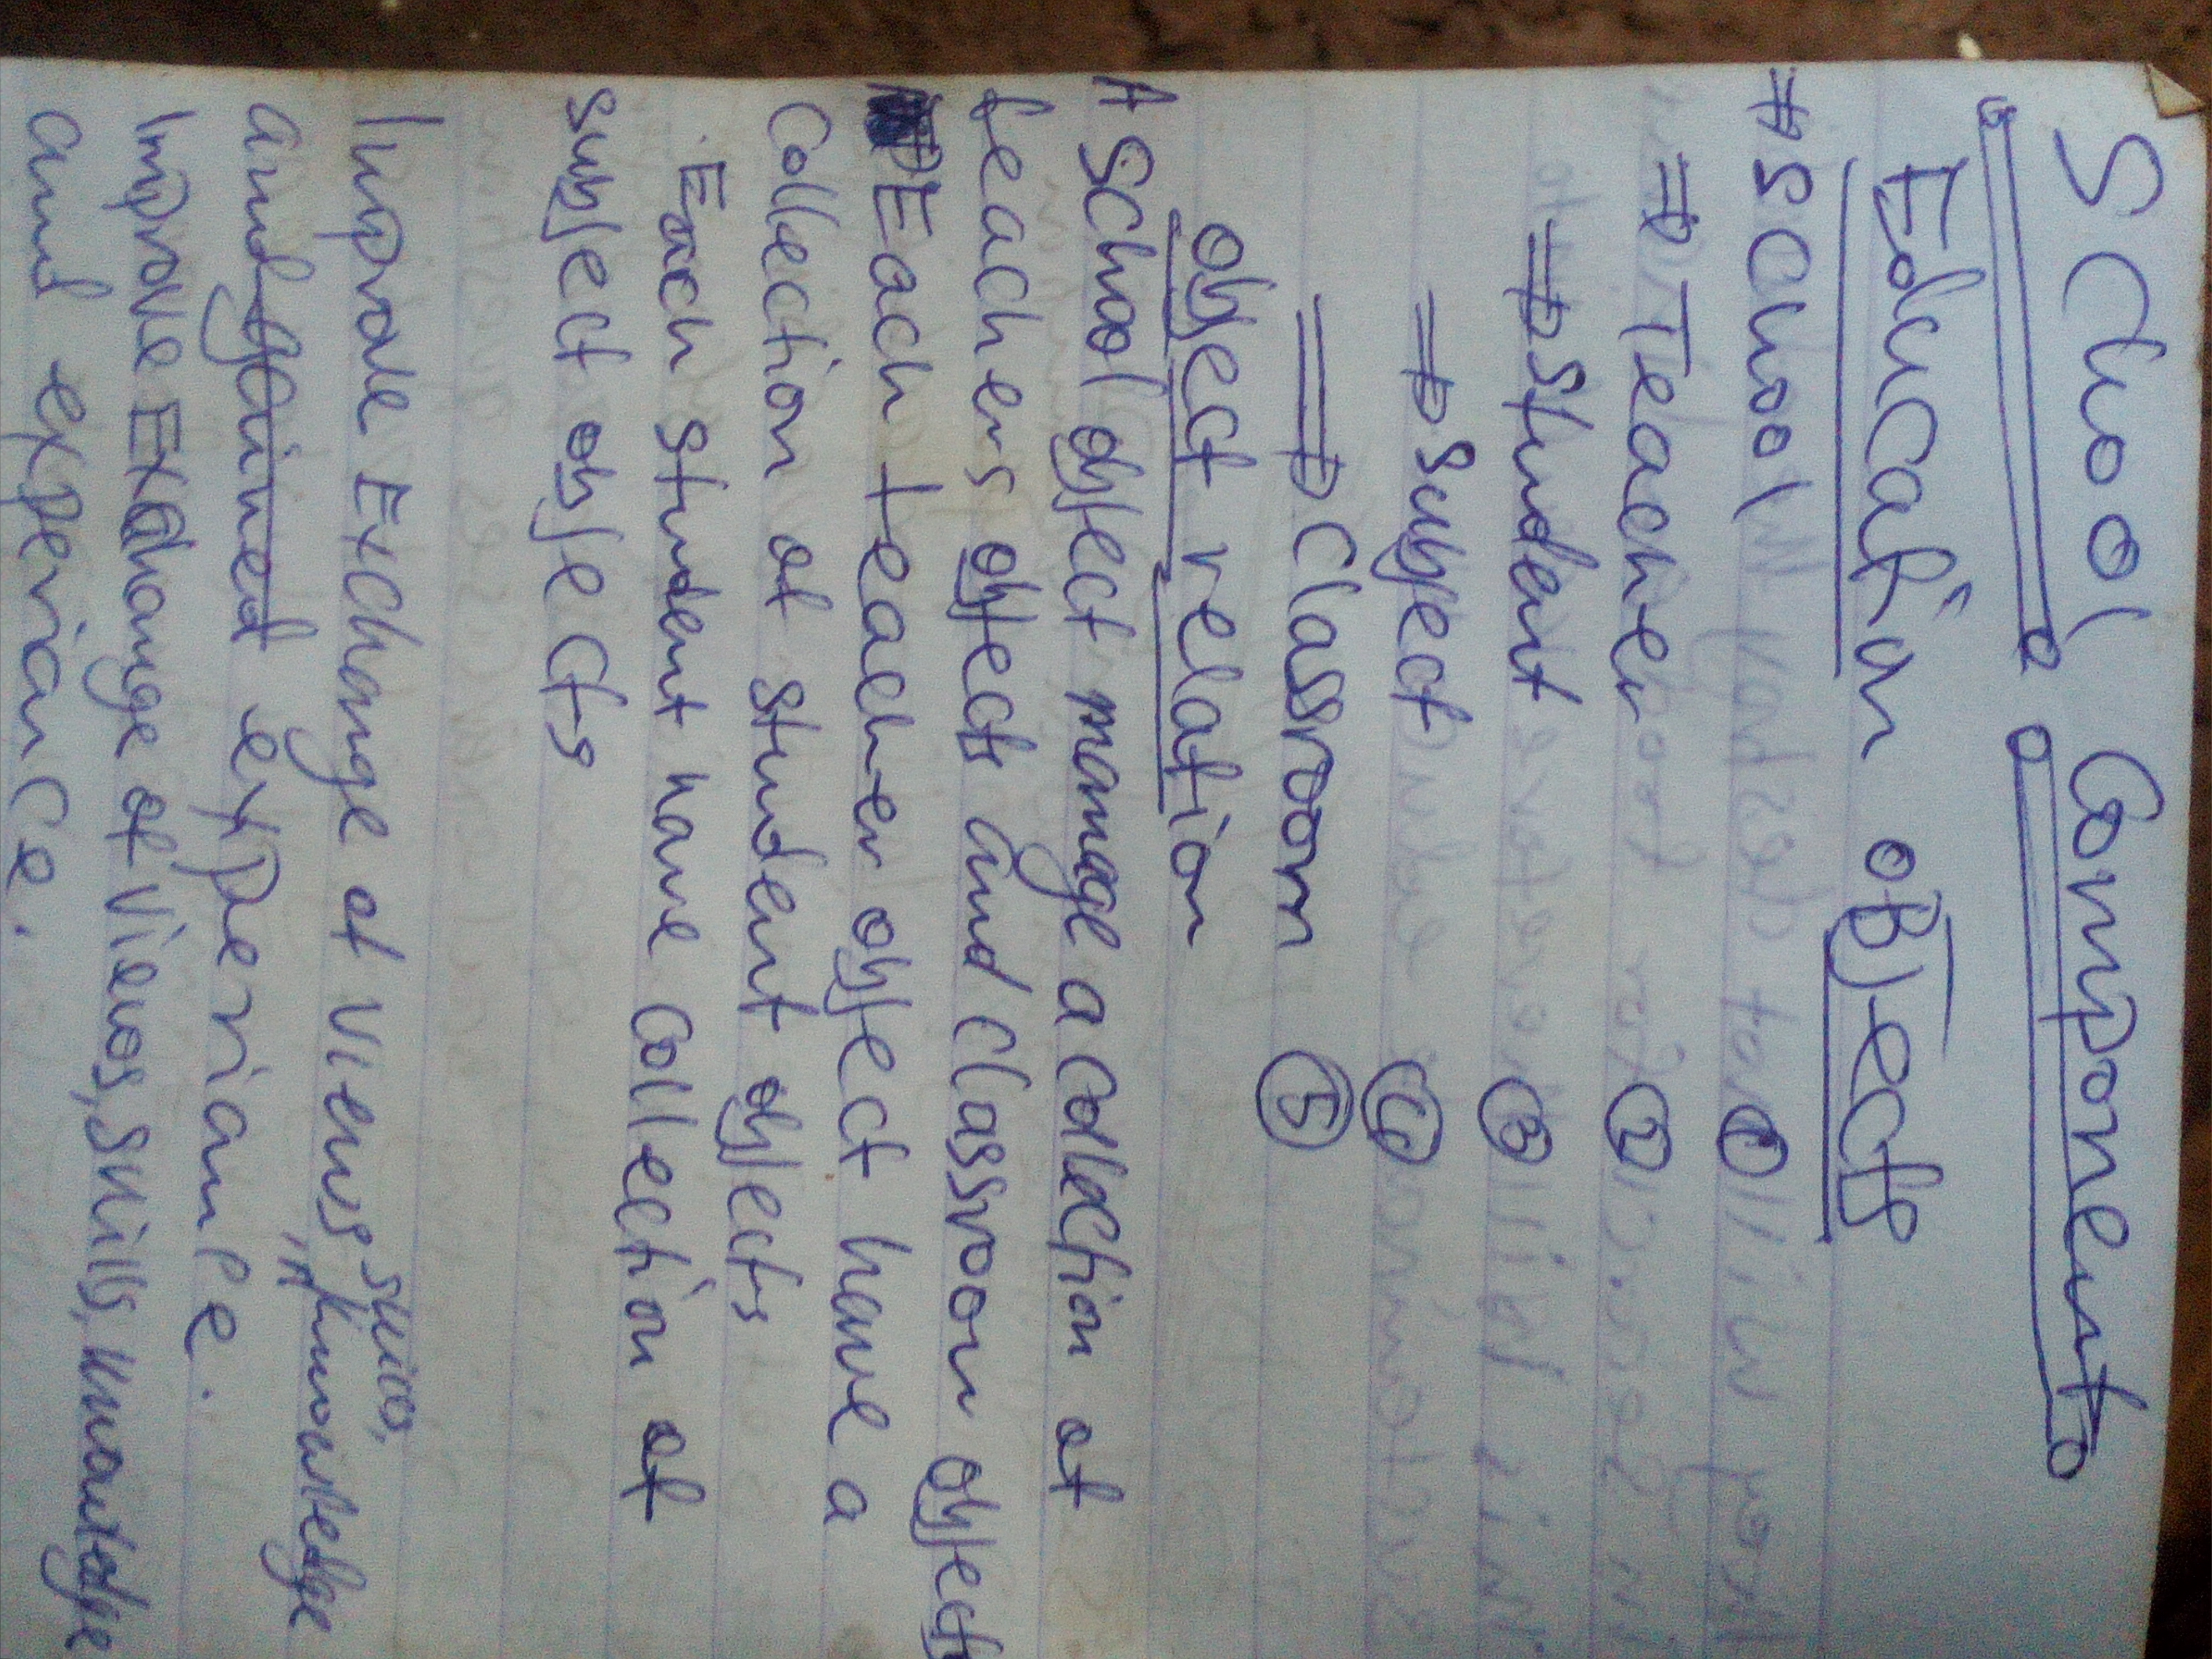 School Component
Education OBJects
⇒ School ①
⇒ Teacher ②
⇒ Student ③
⇒ Subject ④
⇒ Classroom ⑤
object relation
A School object manage a collection of
teachers objects and classroom objects
Each teacher object have a
Collection of student objects
Each student have collection of
subject objects
Improve Exchange of views, skills, knowledge
and gained experiance.
Improve Exchange of views, skills, knowledge
and experiance.